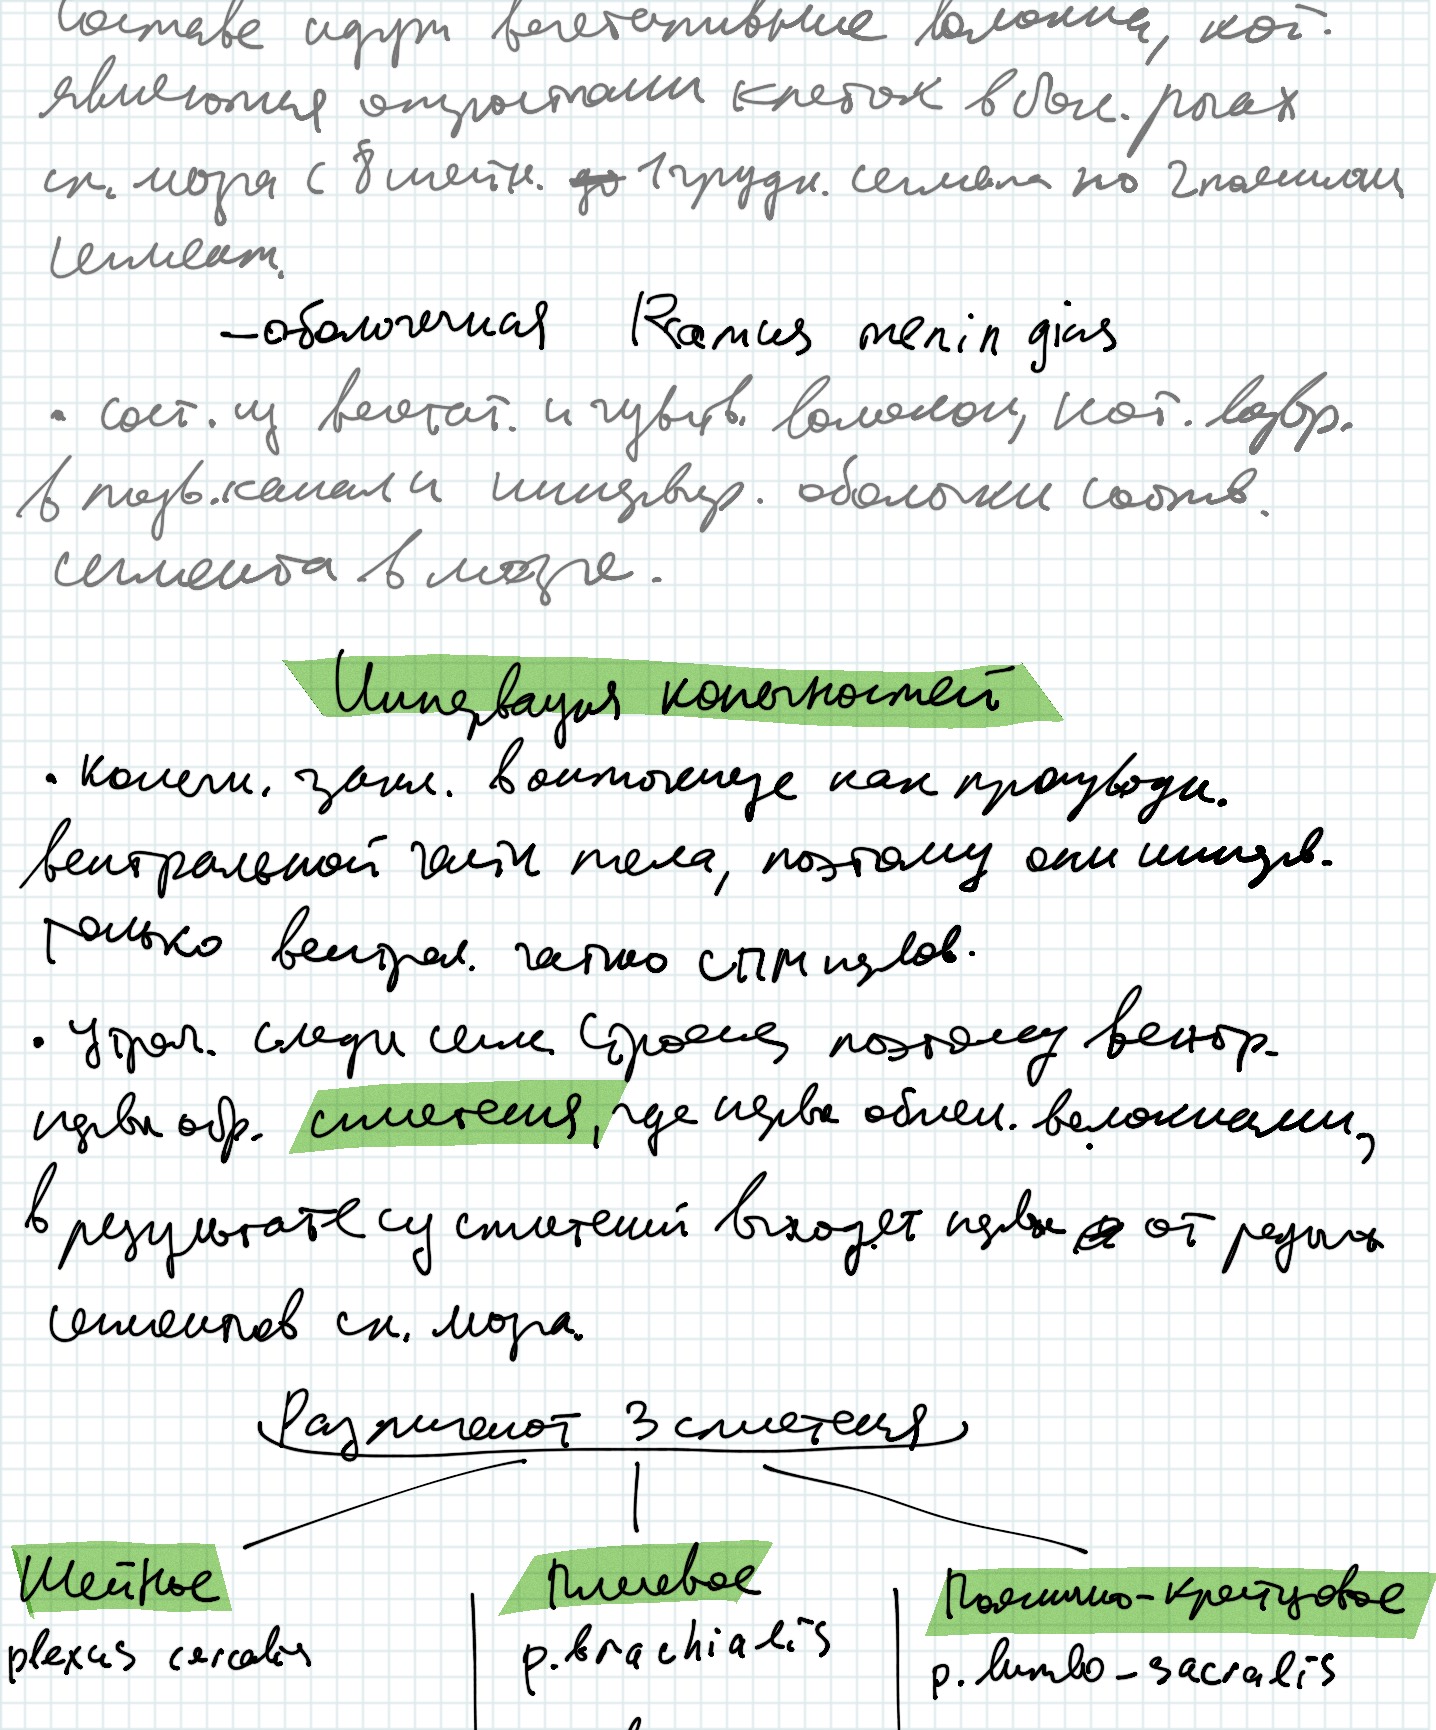 составе идут вегетативные волокна, кот.
являются отростками клеток в бок. рогах
сп. мозга с 8 шейн. до 1 грудн. сегмента по 2 поясничн
сегмент.
- оболочечная Ramus meningius
• сост. из вегетат. и чувств. волокон, кот. возвр.
в позв. канал и иннервир. оболочки соотв.
сегмента в мозге.
Иннервация конечностей
• Конечн. закл. в онтогенезе как производн.
вентральной части тела, поэтому они иннерв.
только вентрал. частью СПМ нервов.
• Утрач. следы сегм. строения поэтому вентр.
нервы обр. сплетения, где нервы обмен. волокнами,
в результате из сплетений выходят нервы от разных
сегментов сп. мозга.
Различают 3 сплетения
Шейное
Плечевое
Пояснично-крестцовое
plexus cercalis
p. brachialis
p. lumbo-sacralis